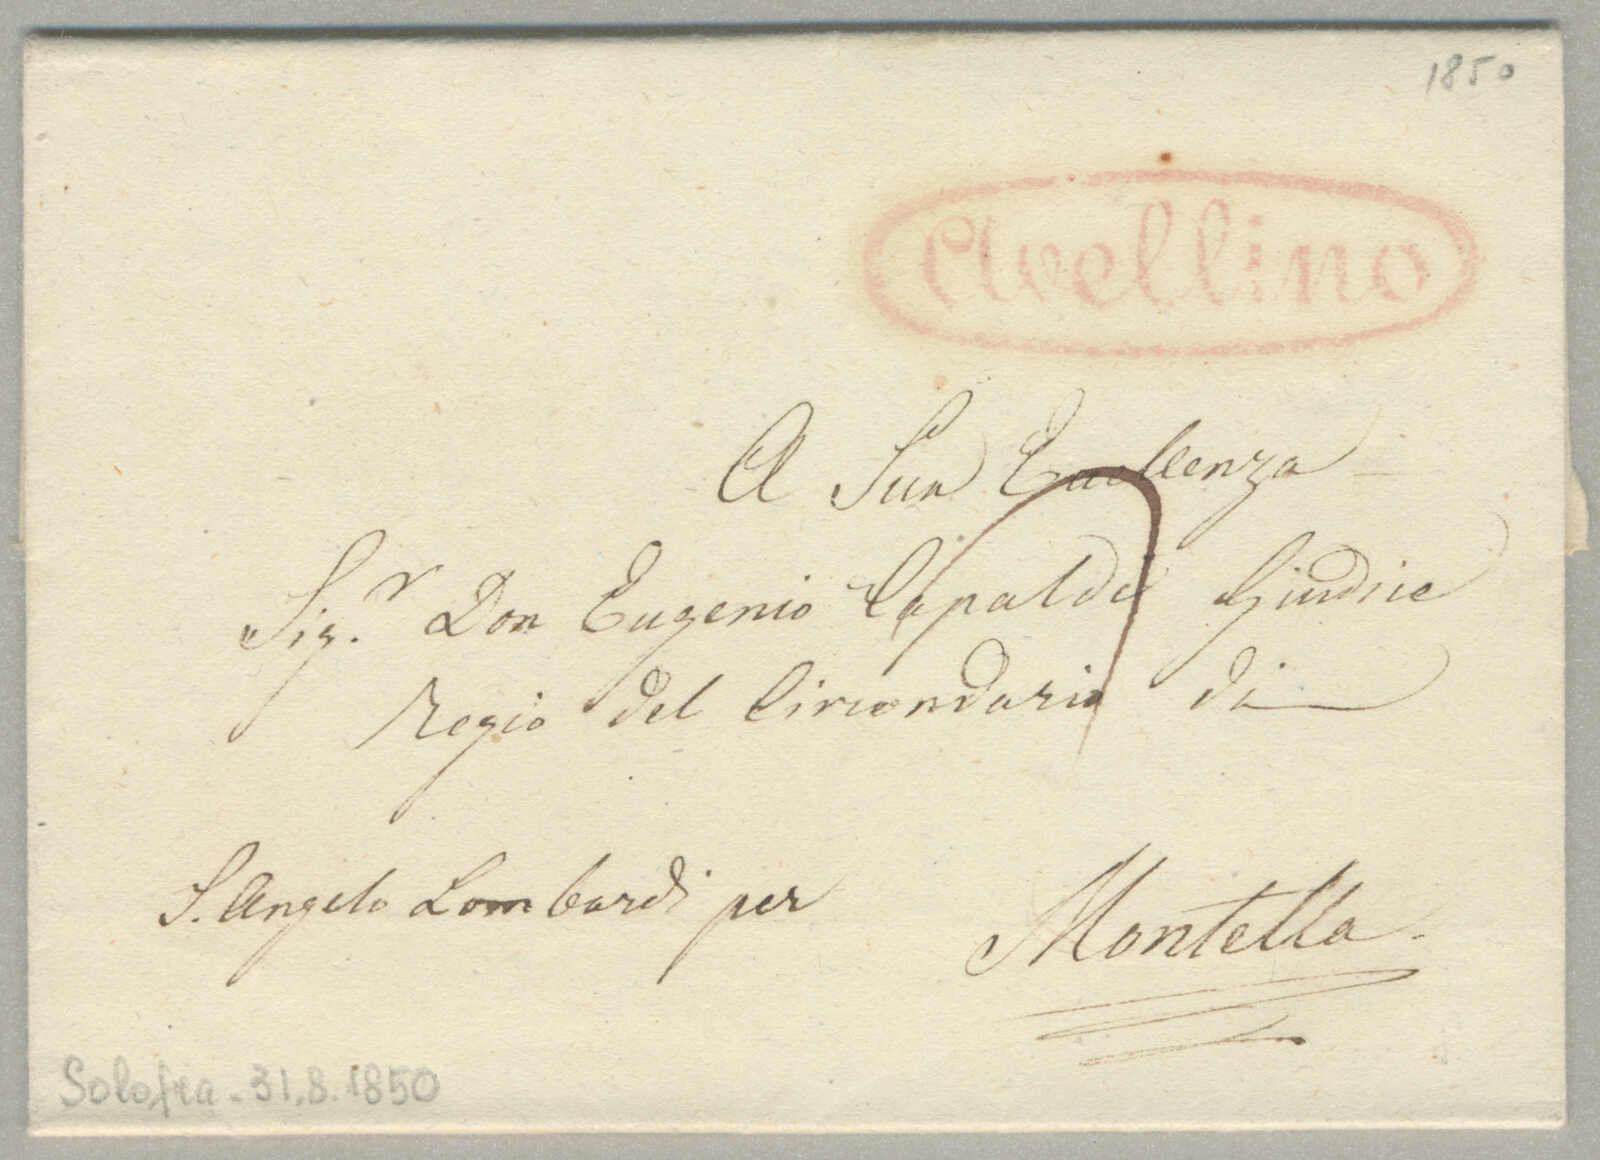 1850
Avellino
A Sua Eccellenza
Sig.r Don Eugenio Capaldo Giudice
Regio del Circondario di
S. Angelo Lombardi per
Montella.
Solofra - 31.8.1850